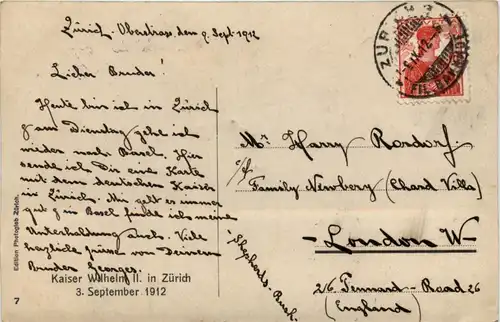 Zürich, Oberstrass, den 9. Sept. 1912
Lieber Bruder!
Heute bin ich in Zürich
& am Dienstag gehe ich
wieder nach Basel. Hier
sende ich Dir eine Karte
mit dem deutschen Kaiser
in Zürich. Mir geht es immer
gut & in Basel finde ich meine
Unterhaltung auch. Viele
herzliche Grüsse von Deinem
Bruder Georges.
Kaiser Wilhelm II. in Zürich
3. September 1912
Edition Photoglob Zürich.
7
Mr Harry Rordorf.
c/o
Family Newberg (Chard Villa)
London W
Shepherds-Bush.
26 Pennard-Road 26
(England)